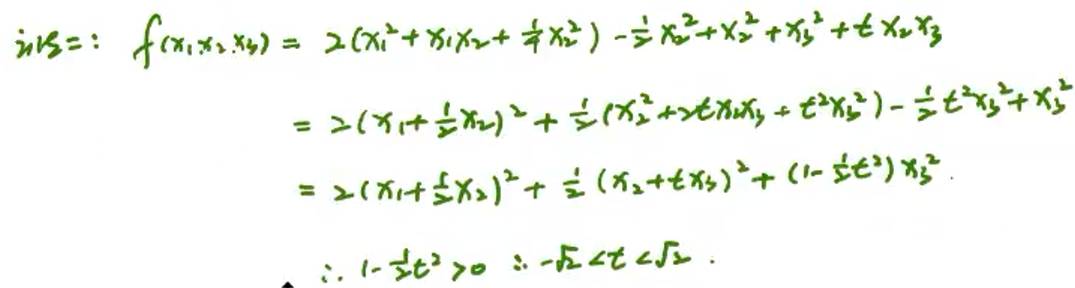 法二: f(x₁,x₂,x₃) = 2(x₁²+x₁x₂+¼x₂²) -½x₂²+x₂²+x₃²+tx₂x₃
= 2(x₁+½x₂)²+½(x₂²+2tx₂x₃+t²x₃²)-½t²x₃²+x₃²
= 2(x₁+½x₂)²+½(x₂+tx₃)²+(1-½t²)x₃².
∴ 1-½t²>0 ∴ -√2<t<√2.